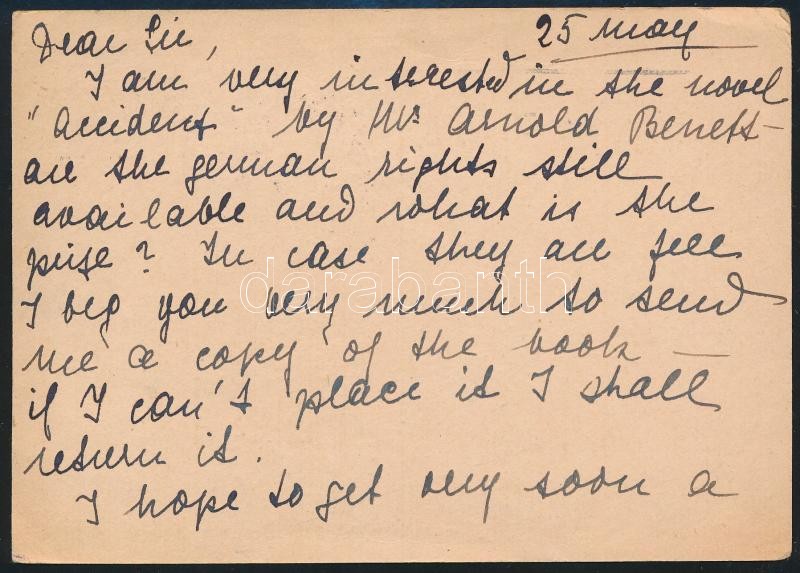 Dear Sir,
25 May
I am very interested in the novel
"accident" by Mr. Arnold Benett -
are the german rights still
available and what is the
prize? In case they are free
I beg you very much to send
me a copy of the book —
if I can't place it I shall
return it.
I hope to get very soon a
darabanth